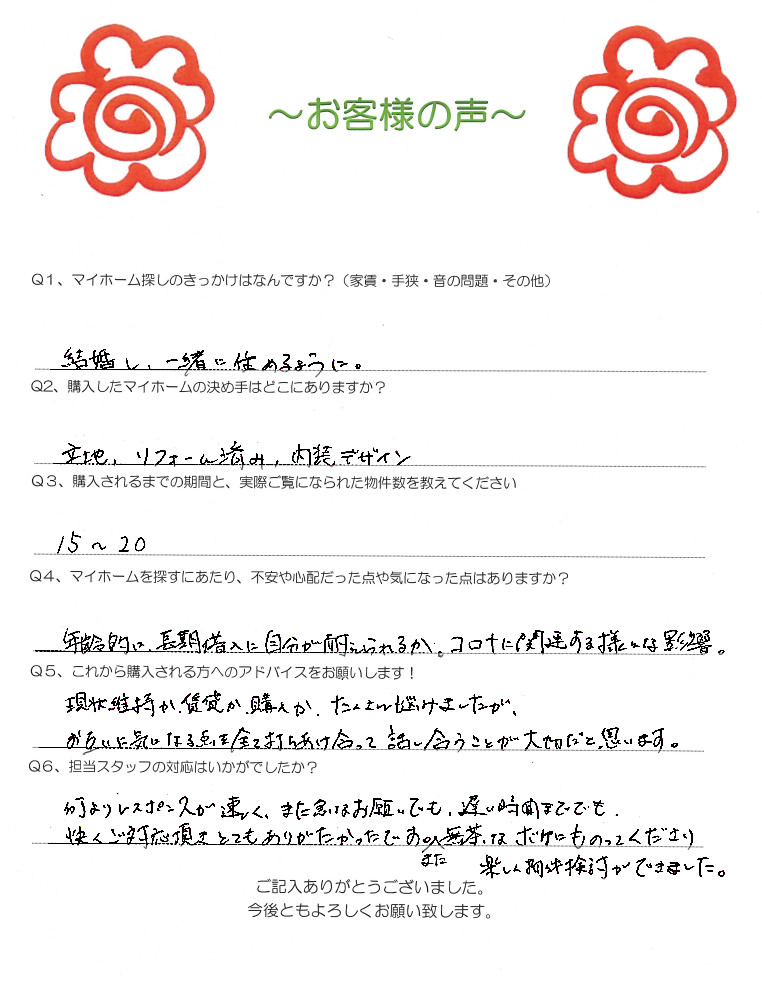 ～お客様の声～
Q1、マイホーム探しのきっかけはなんですか？（家賃・手狭・音の問題・その他）
結婚し、一緒に住めるように。
Q2、購入したマイホームの決め手はどこにありますか？
立地、リフォーム済み、内装デザイン
Q3、購入されるまでの期間と、実際ご覧になられた物件数を教えてください
15～20
Q4、マイホームを探すにあたり、不安や心配だった点や気になった点はありますか？
年齢的に、長期借入に自分が耐えられるか。コロナに関連する様々な影響。
Q5、これから購入される方へのアドバイスをお願いします！
現状維持か、賃貸か、購入か、たくさん悩みましたが、
お互いに気になる点を全て打ちあけ合って話し合うことが大切だと思います。
Q6、担当スタッフの対応はいかがでしたか？
何よりレスポンスが速く、また急なお願いでも、遅い時間まででも、
快くご対応頂きとてもありがたかったです。また無茶なボケにものってくださり
楽しく物件検討ができました。
ご記入ありがとうございました。
今後ともよろしくお願い致します。